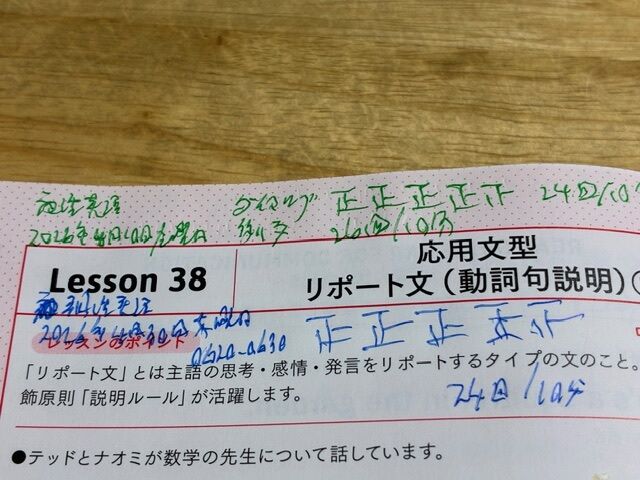 2026年4月10日金曜日
正正正正正 24回/10
26回/10分
Lesson 38
応用文型
リポート文（動詞句説明）（
2026年4月30日木曜日
0620-0630
正正正正正
レッスンのポイント
「リポート文」とは主語の思考・感情・発言をリポートするタイプの文のこと。
飾原則「説明ルール」が活躍します。
24回/10分
●テッドとナオミが数学の先生について話しています。